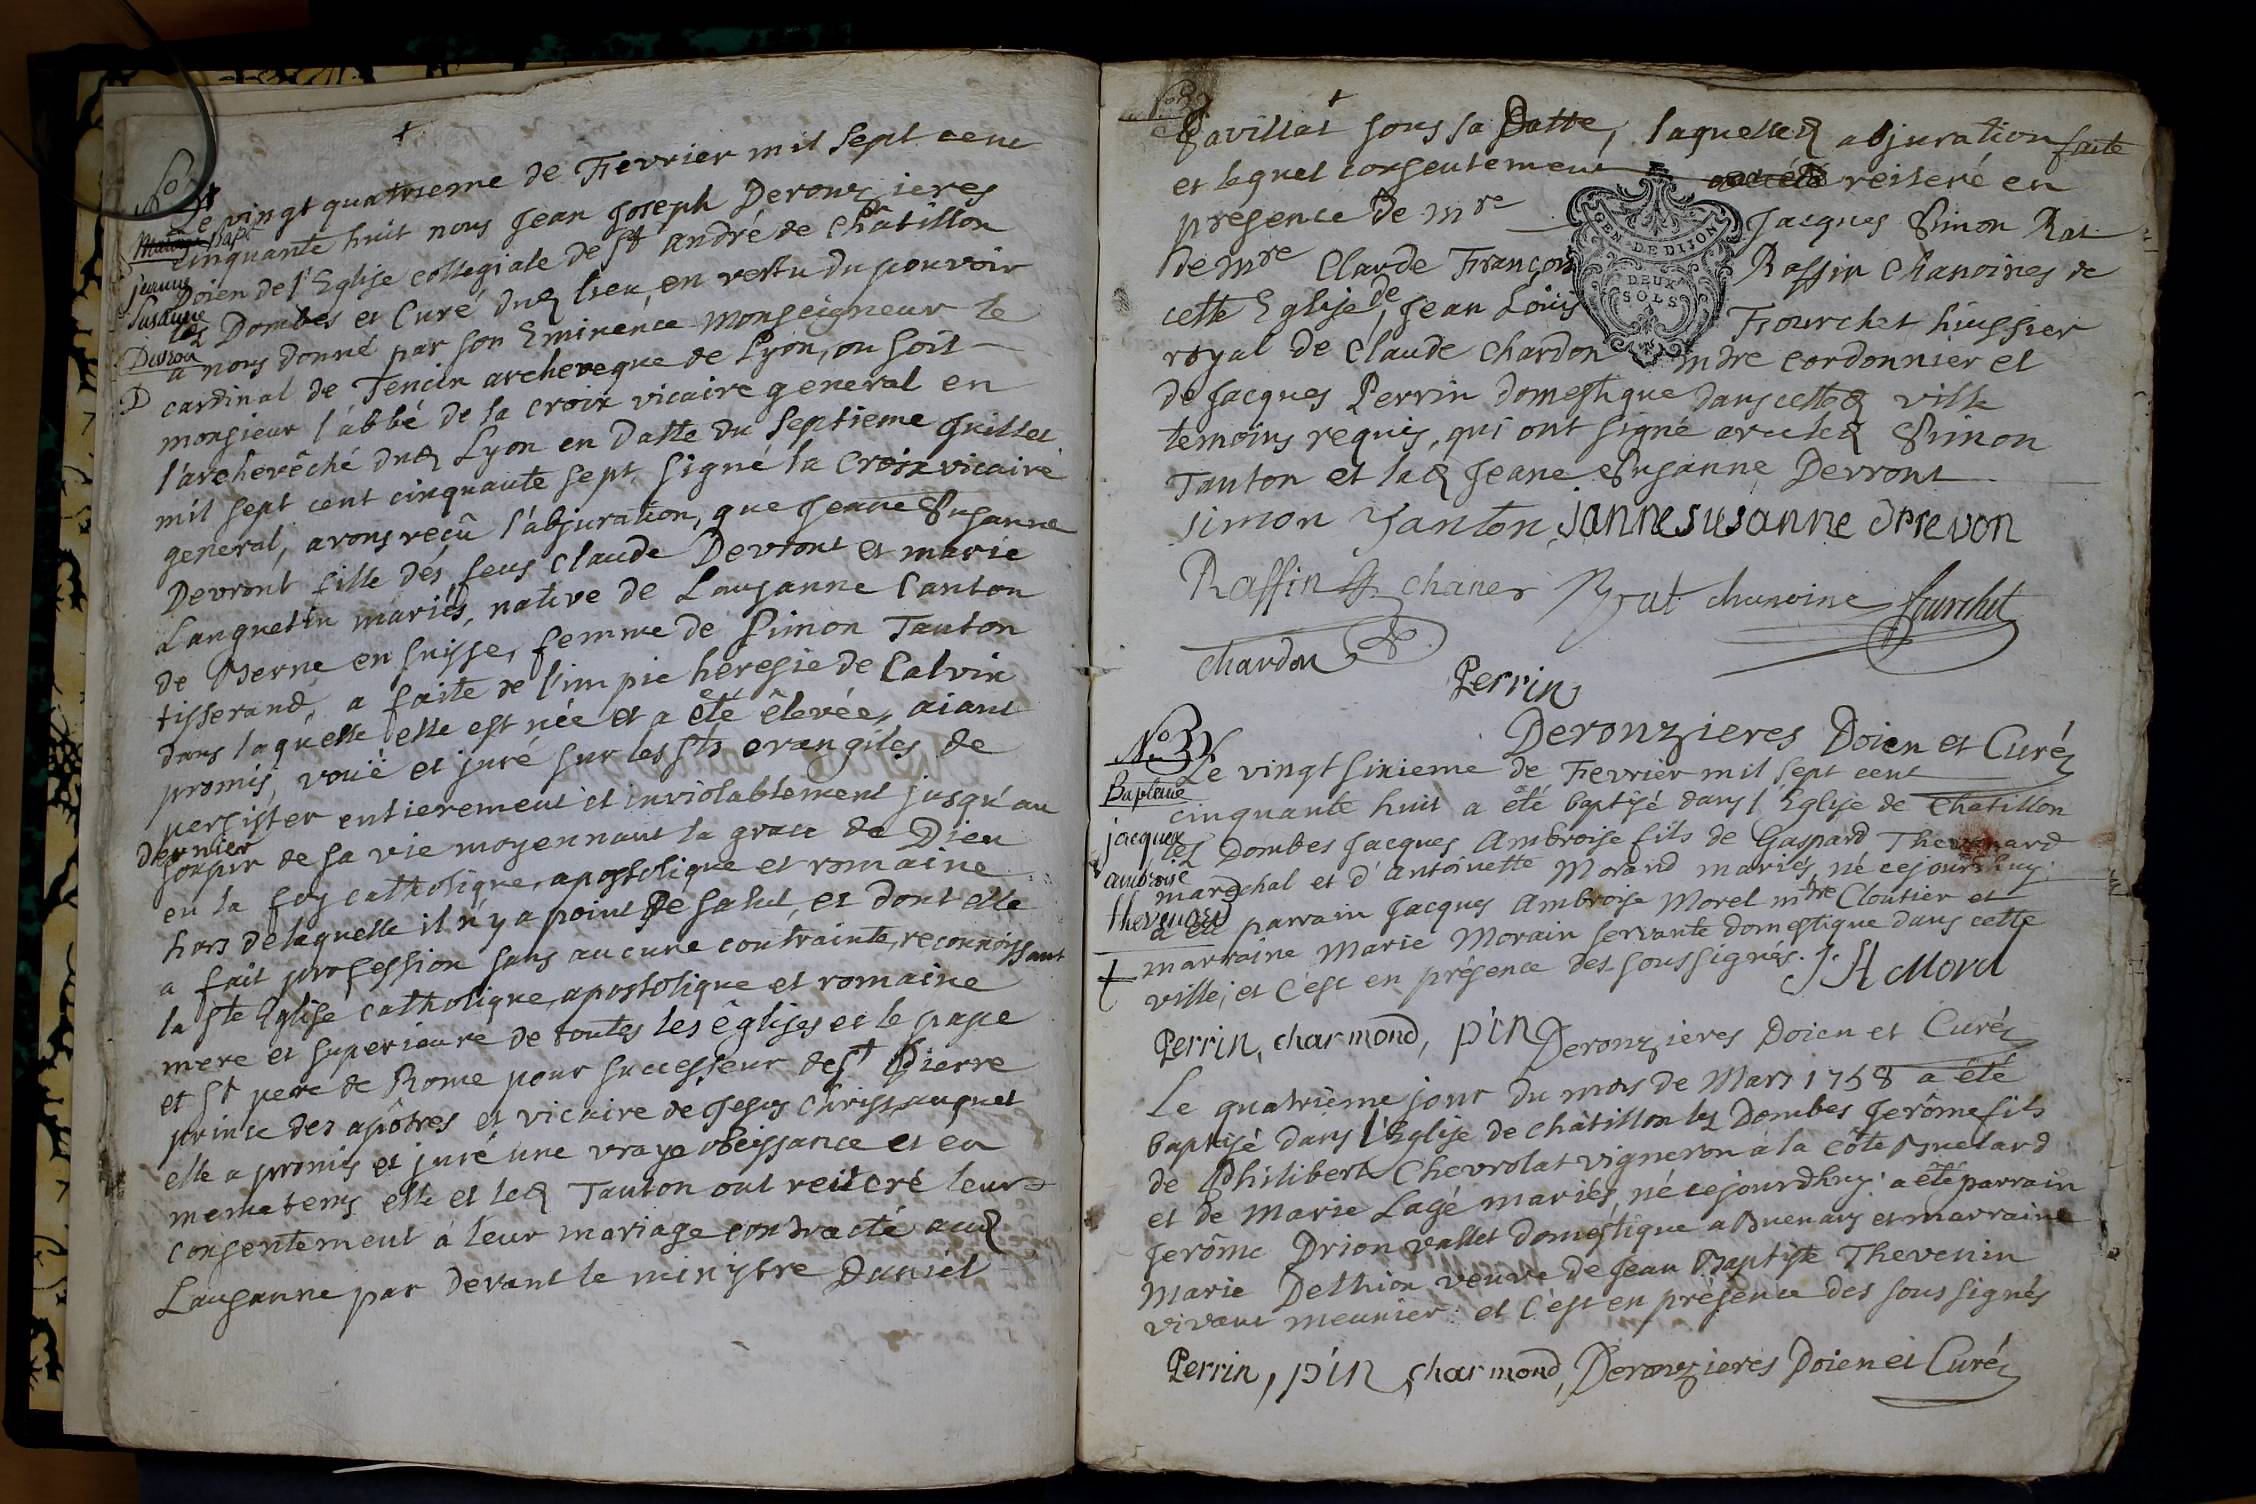 Le vingt quatrieme de Fevrier mil sept cent
Mariage Bapt
cinquante huit nous Jean Joseph Deronzieres
jeanne
Doien de l'Eglise collegiale de St andré de Châtillon
Susanne
les Dombes et Curé dud lieu, en vertu du pouvoir
à nous donné par son Eminence Monseigneur le
cardinal de Tencin archeveque de Lyon, ou soit
monsieur l'abbé de la croix vicaire general en
l'archevêché dud Lyon en datte du septieme Juillet
mil sept cent cinquante sept, signé la Croix vicaire
general, avons reçû l'abjuration, que Jeane Susanne
Devront fille dés feus Claude Devront et marie
Lanquetin mariés, native de Lausanne Canton
de Berne en suisse, femme de Simon Tanton
tisserand, a faite de l'impie heresie de Calvin
dans laquelle elle est née et a êté êlevée, aiant
promis, voüé et juré sur les sts evangiles de
persister entierement et inviolablement jusqu'au
dernier
soupir de sa vie moyennant la grace de Dieu
en la foy catholique, apostolique et romaine
hors de laquelle il n'y a point de salut, et dont elle
a fait profession sans aucune contrainte, reconnoissant
la Ste Eglise catholique, apostolique et romaine
mere et superieure de toutes les êglises et le pape
et St pere de Rome pour successeur de St Pierre
prince des apôtres et vicaire de Jesus Christ auquel
elle a promis et juré une vraye obeissance et en
meme tems elle et led Tanton ont reiteré leur
consentement à leur mariage contracté aud
Lausanne par devant le ministre Daniel
Pavillat sous sa Datte, laquelled abjuration faite
et lequel consentement a été reiteré en
presence de mre Jacques Simon Rat
de mre Claude François Raffin Chanoines de
cette Eglise, de Jean Loüis Fourchet huissier
royal de Claude Chardon mdre cordonnier et
de Jacques Perrin domestique dans cetted ville
temoins requis, qui ont signé avec led Simon
Tanton et lad Jeane Susanne Devront
simon Tanton, janne susanne drevon
Raffin chaner Rat chanoine fourchet
chardon
Perrin
Deronzieres Doien et Curé
No 3
Le vingt sixieme de Fevrier mil sept cent
Bapteme
cinquante huit a êté baptisé dans l'Eglise de Chatillon
jacques
les Dombes Jacques Ambroise fils de Gaspard Thevenard
ambroise
marechal et d'antoinette Morand mariés, né cejourdhuy.
thevenard
a été parrain Jacques Ambroise Morel mtre Cloutier et
marraine Marie Morain servante domestique dans cette
ville, et c'est en présence des soussignés. J. A Morel
Perrin, charmond, pin Deronzieres Doien et Curé
Le quatrième jour du mois de Mars 1758 a êté
baptisé dans l'Eglise de châtillon les Dombes Jerôme fils
de Philibert Chevrolat vigneron a la côte Buelard
et de Marie Lagé mariés, né cejourdhuy: a êté parrain
Jerôme Drion vallet domestique a Buenans et marraine
Marie Delhion veuve de Jean Baptiste Thevenin
vivant meunier: et c'est en présence des soussignés
Perrin, pin charmond, Deronzieres Doien et Curé
GEN. DE DIJON
DEUX
SOLS